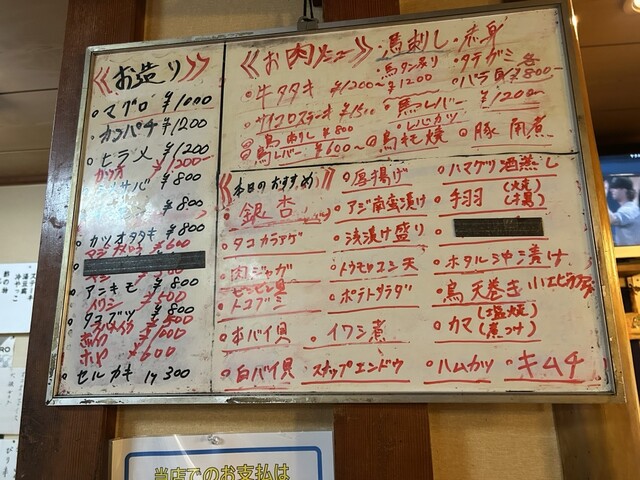 《お造り》
マグロ ¥1000
カンパチ ¥1200
ヒラメ ¥1200
カツオ ¥1200
サバ ¥800
¥800
カツオタタキ ¥800
¥600
アンキモ ¥800
イワシ ¥500
¥800
ホヤ ¥600
セルガキ 1ヶ 300
《お肉メニュー》
・馬刺し・赤身
・馬タン炙り ¥1200
・タテガミ 各
・バラ ¥800
牛タタキ ¥1200〜
サイコロステーキ ¥1500
・馬レバー ¥1200
鳥刺し ¥800
鳥レバー ¥600〜
・レバカツ
鳥もも焼
・豚角煮
《本日のおすすめ》
銀杏
タコカラアゲ
肉ジャガ
トコブシ
本バイ貝
白バイ貝
厚揚げ
アジ南蛮漬け
浅漬け盛り
トウモロコシ天
ポテトサラダ
イワシ煮
スナップエンドウ
ハマグリ酒蒸し
手羽(焼)(揚)
ホタルイカ沖漬け
鳥天巻き
小エビカラアゲ
カマ(塩焼)(煮つけ)
ハムカツ
キムチ
当店でのお支払は